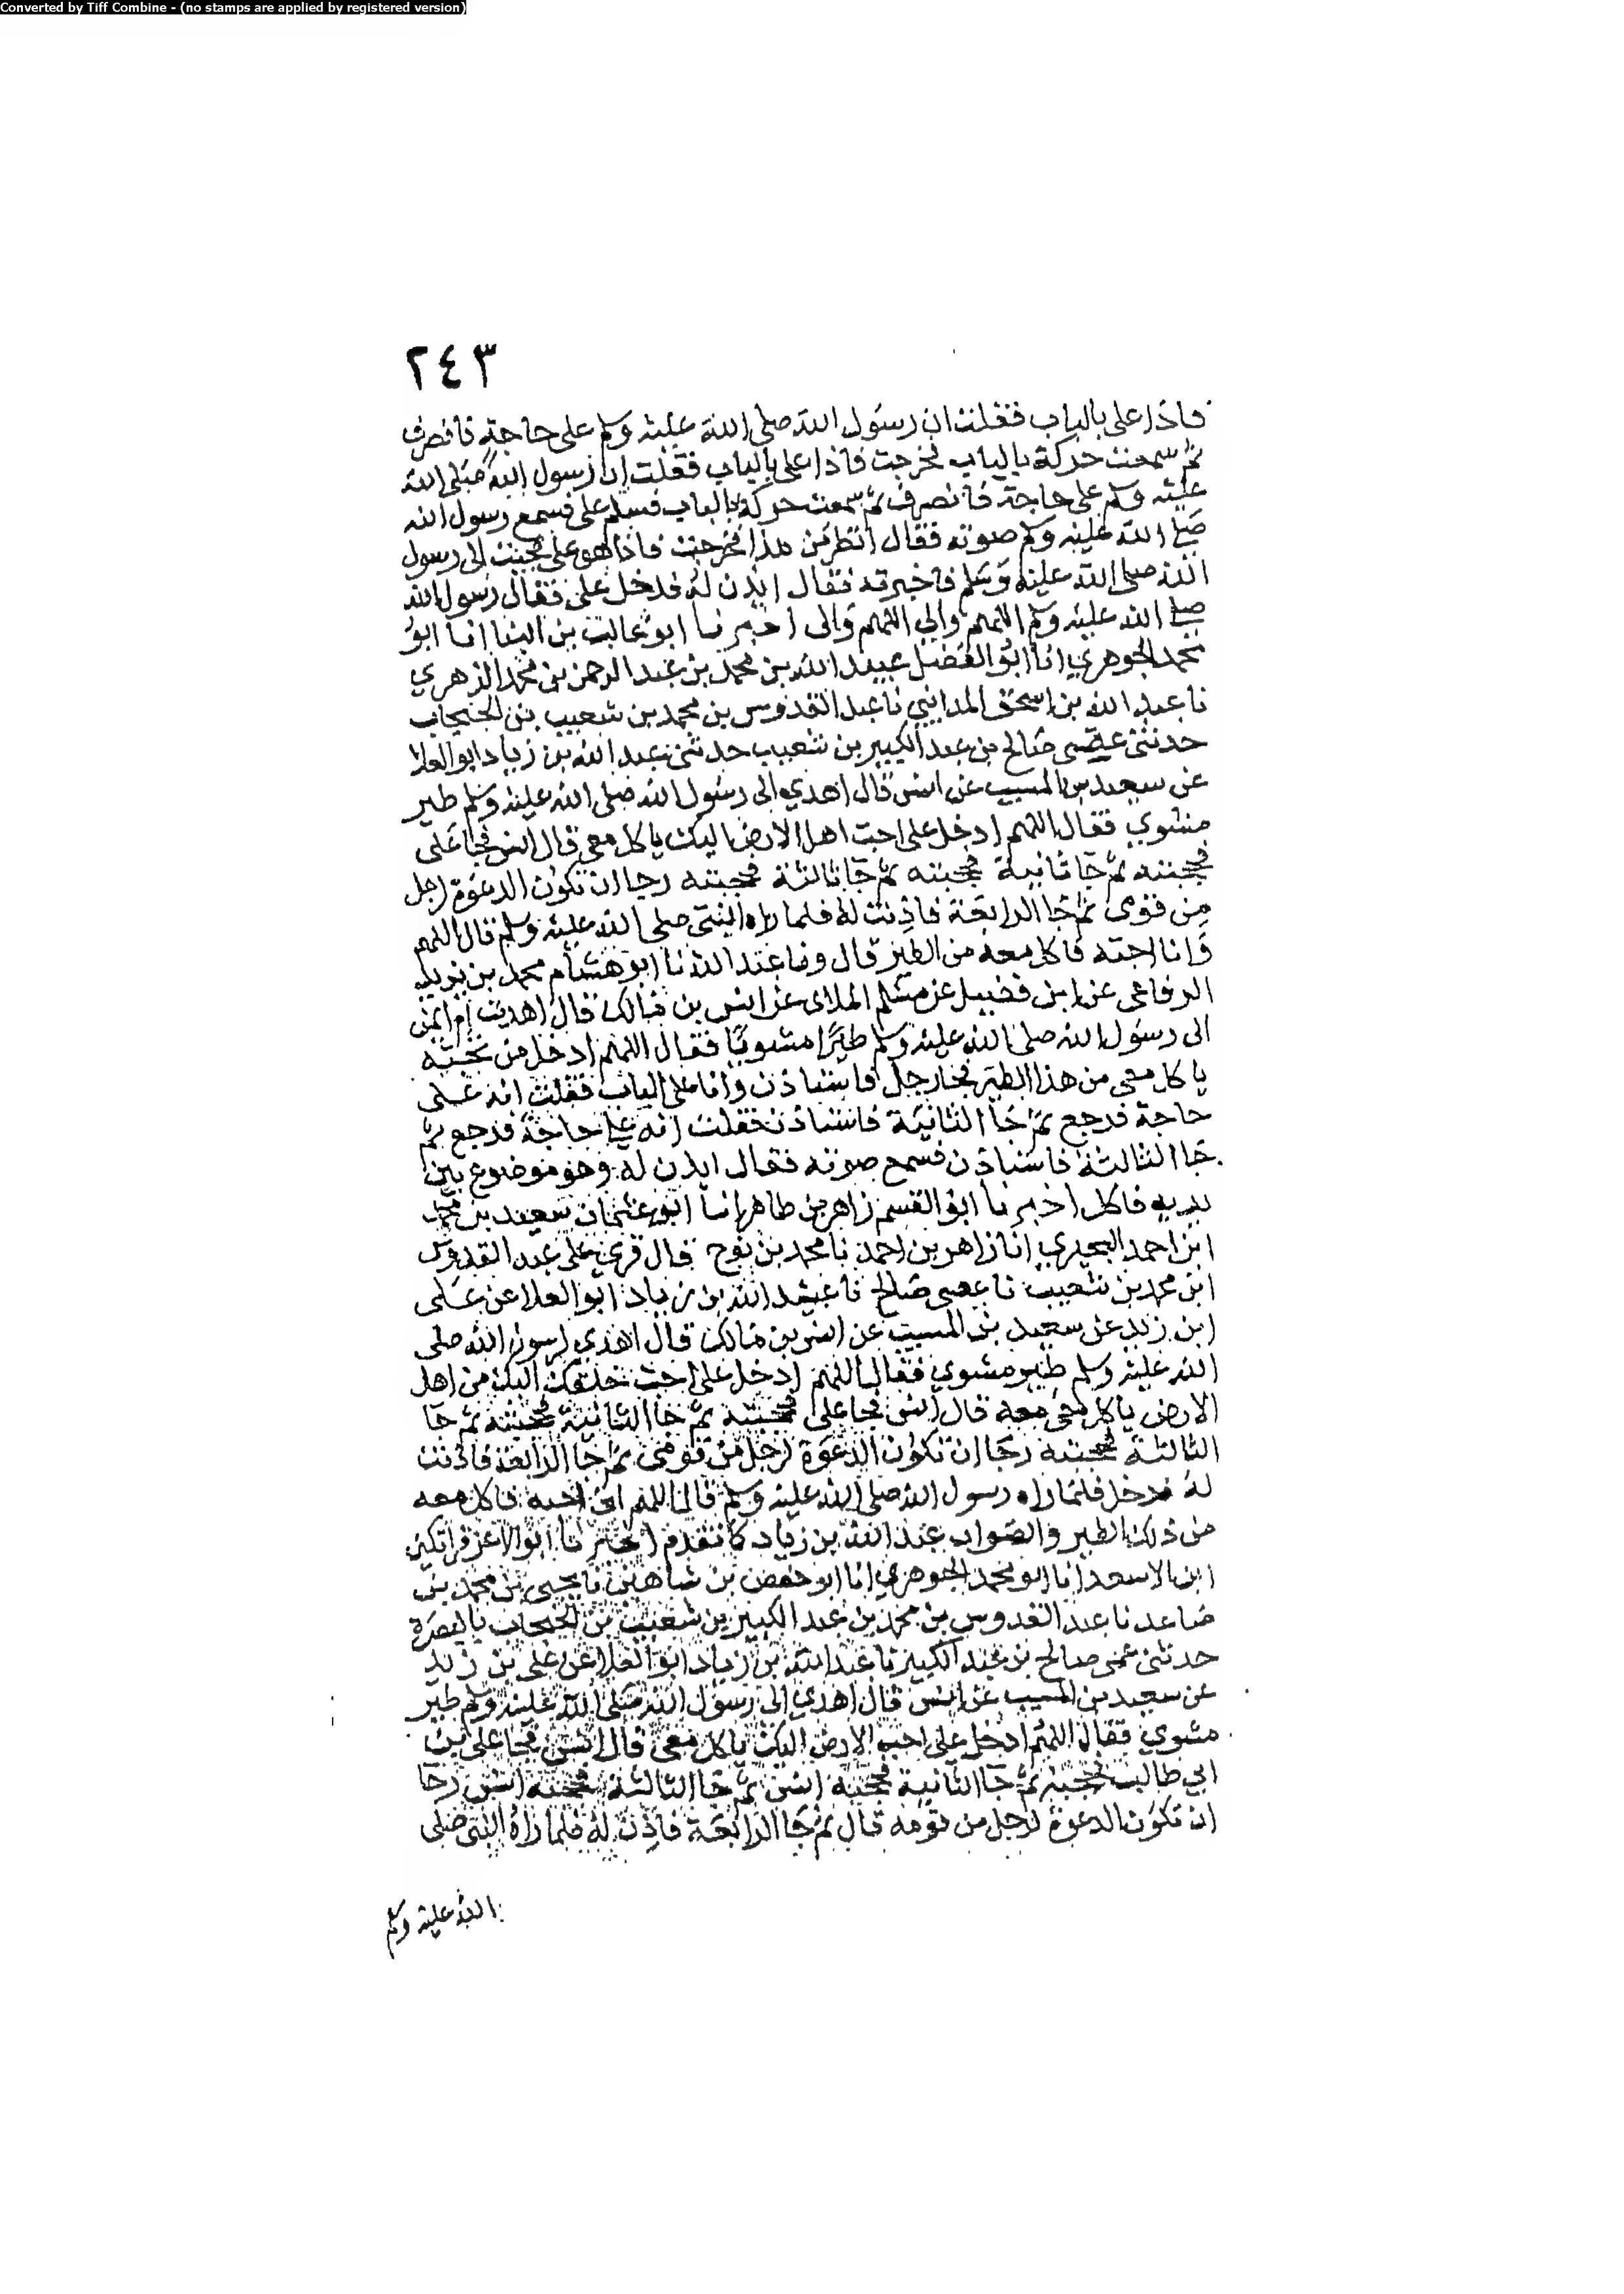 Converted by Tiff Combine - (no stamps are applied by registered version)
٢٤٣
فاذا على بالباب فقلت ان رسول الله صلى الله عليه وسلم على حاجة فانصرف
ثم سمعت حركة بالباب فخرجت فاذا على بالباب فقلت ان رسول الله صلى الله
عليه وسلم على حاجة فانصرف ثم سمعت حركة بالباب فسلم على فسمع رسول الله
صلى الله عليه وسلم صوته فقال انظر من هذا فخرجت فاذا هو على فجيت الى رسول
الله صلى الله عليه وسلم فاخبرته فقال ايذن له فدخل على فقال رسول الله
صلى الله عليه وسلم اللهم والي اللهم والى اخبرنا ابو غالب بن البنا انا ابو
محمد الجوهري انا ابو الفضل عبيد الله بن محمد بن عبد الرحمن بن محمد الزهري
نا عبد الله بن اسحق المدايني نا عبد القدوس بن محمد بن شعيب بن الحبحاب
حدثني عمي صالح بن عبد الكبير بن شعيب حدثني عبد الله بن زياد ابو العلا
عن سعيد بن المسيب عن انس قال اهدي الى رسول الله صلى الله عليه وسلم طير
مشوي فقال اللهم ادخل على احب اهل الارض اليك ياكل معي قال انس فجا على
فحجبته ثم جا ثانية فحجبته ثم جا ثالثة فحجبته رجا ان تكون الدعوة لرجل
من قومى ثم جا الرابعة فاذنت له فلما راه النبي صلى الله عليه وسلم قال اللهم
وانا احبه فاكل معه من الطير قال ونا عبد الله نا ابو هشام محمد بن يزيد
الرفاعى عن ابن فضيل عن مسلم الملاى عن انس بن مالك قال اهدت ام ايمن
الى رسول الله صلى الله عليه وسلم طيرا مشويا فقال اللهم ادخل من تحبه
ياكل معى من هذا الطير فجا رجل فاستاذن وانا على الباب فقلت انه على
حاجة فرجع ثم جا الثانية فاستاذن فقلت انه على حاجة فرجع ثم
جا الثالثة فاستاذن فسمع صوته فقال ايذن له وهو موضوع بين
يديه فاكل اخبرنا ابو القسم زاهر بن طاهر انا ابو عثمان سعيد بن محمد
ابن احمد البحيري انا زاهر بن احمد نا محمد بن نوح قال قري على عبد القدوس
ابن محمد بن شعيب نا عمى صالح نا عبد الله بن زياد ابو العلا عن على
ابن زيد عن سعيد بن المسيب عن انس بن مالك قال اهدي لرسول الله صلى
الله عليه وسلم طير مشوي فقال اللهم ادخل على احب خلقك اليك من اهل
الارض ياكل معى معه قال انس فجا على فحجبته ثم جا الثانية فحجبته ثم جا
الثالثة فحجبته رجا ان تكون الدعوة لرجل من قومى ثم جا الرابعة فاذنت
له فدخل فلما راه رسول الله صلى الله عليه وسلم قال اللهم انى احبه فاكل معه
من ذلك الطير والصواب عبد الله بن زياد كما تقدم اخبرنا ابو الاعز قراتكين
ابن الاسعد انا ابو محمد الجوهري انا ابو حفص بن شاهين نا يحيى بن محمد بن
صاعد نا عبد القدوس بن محمد بن عبد الكبير بن شعيب بن الحبحاب بالبصرة
حدثنى عمى صالح بن عبد الكبير نا عبد الله بن زياد ابو العلا عن على بن زيد
عن سعيد بن المسيب عن انس قال اهدي الى رسول الله صلى الله عليه وسلم طير
مشوي فقال اللهم ادخل على احب الارض اليك ياكل معى قال انس فجا على بن
ابي طالب فحجبته ثم جا الثانية فحجبه انس ثم جا الثالثة فحجبه انس رجا
ان تكون الدعوة لرجل من قومه قال ثم جا الرابعة فاذن له فلما راه النبى صلى
الله عليه وسلم